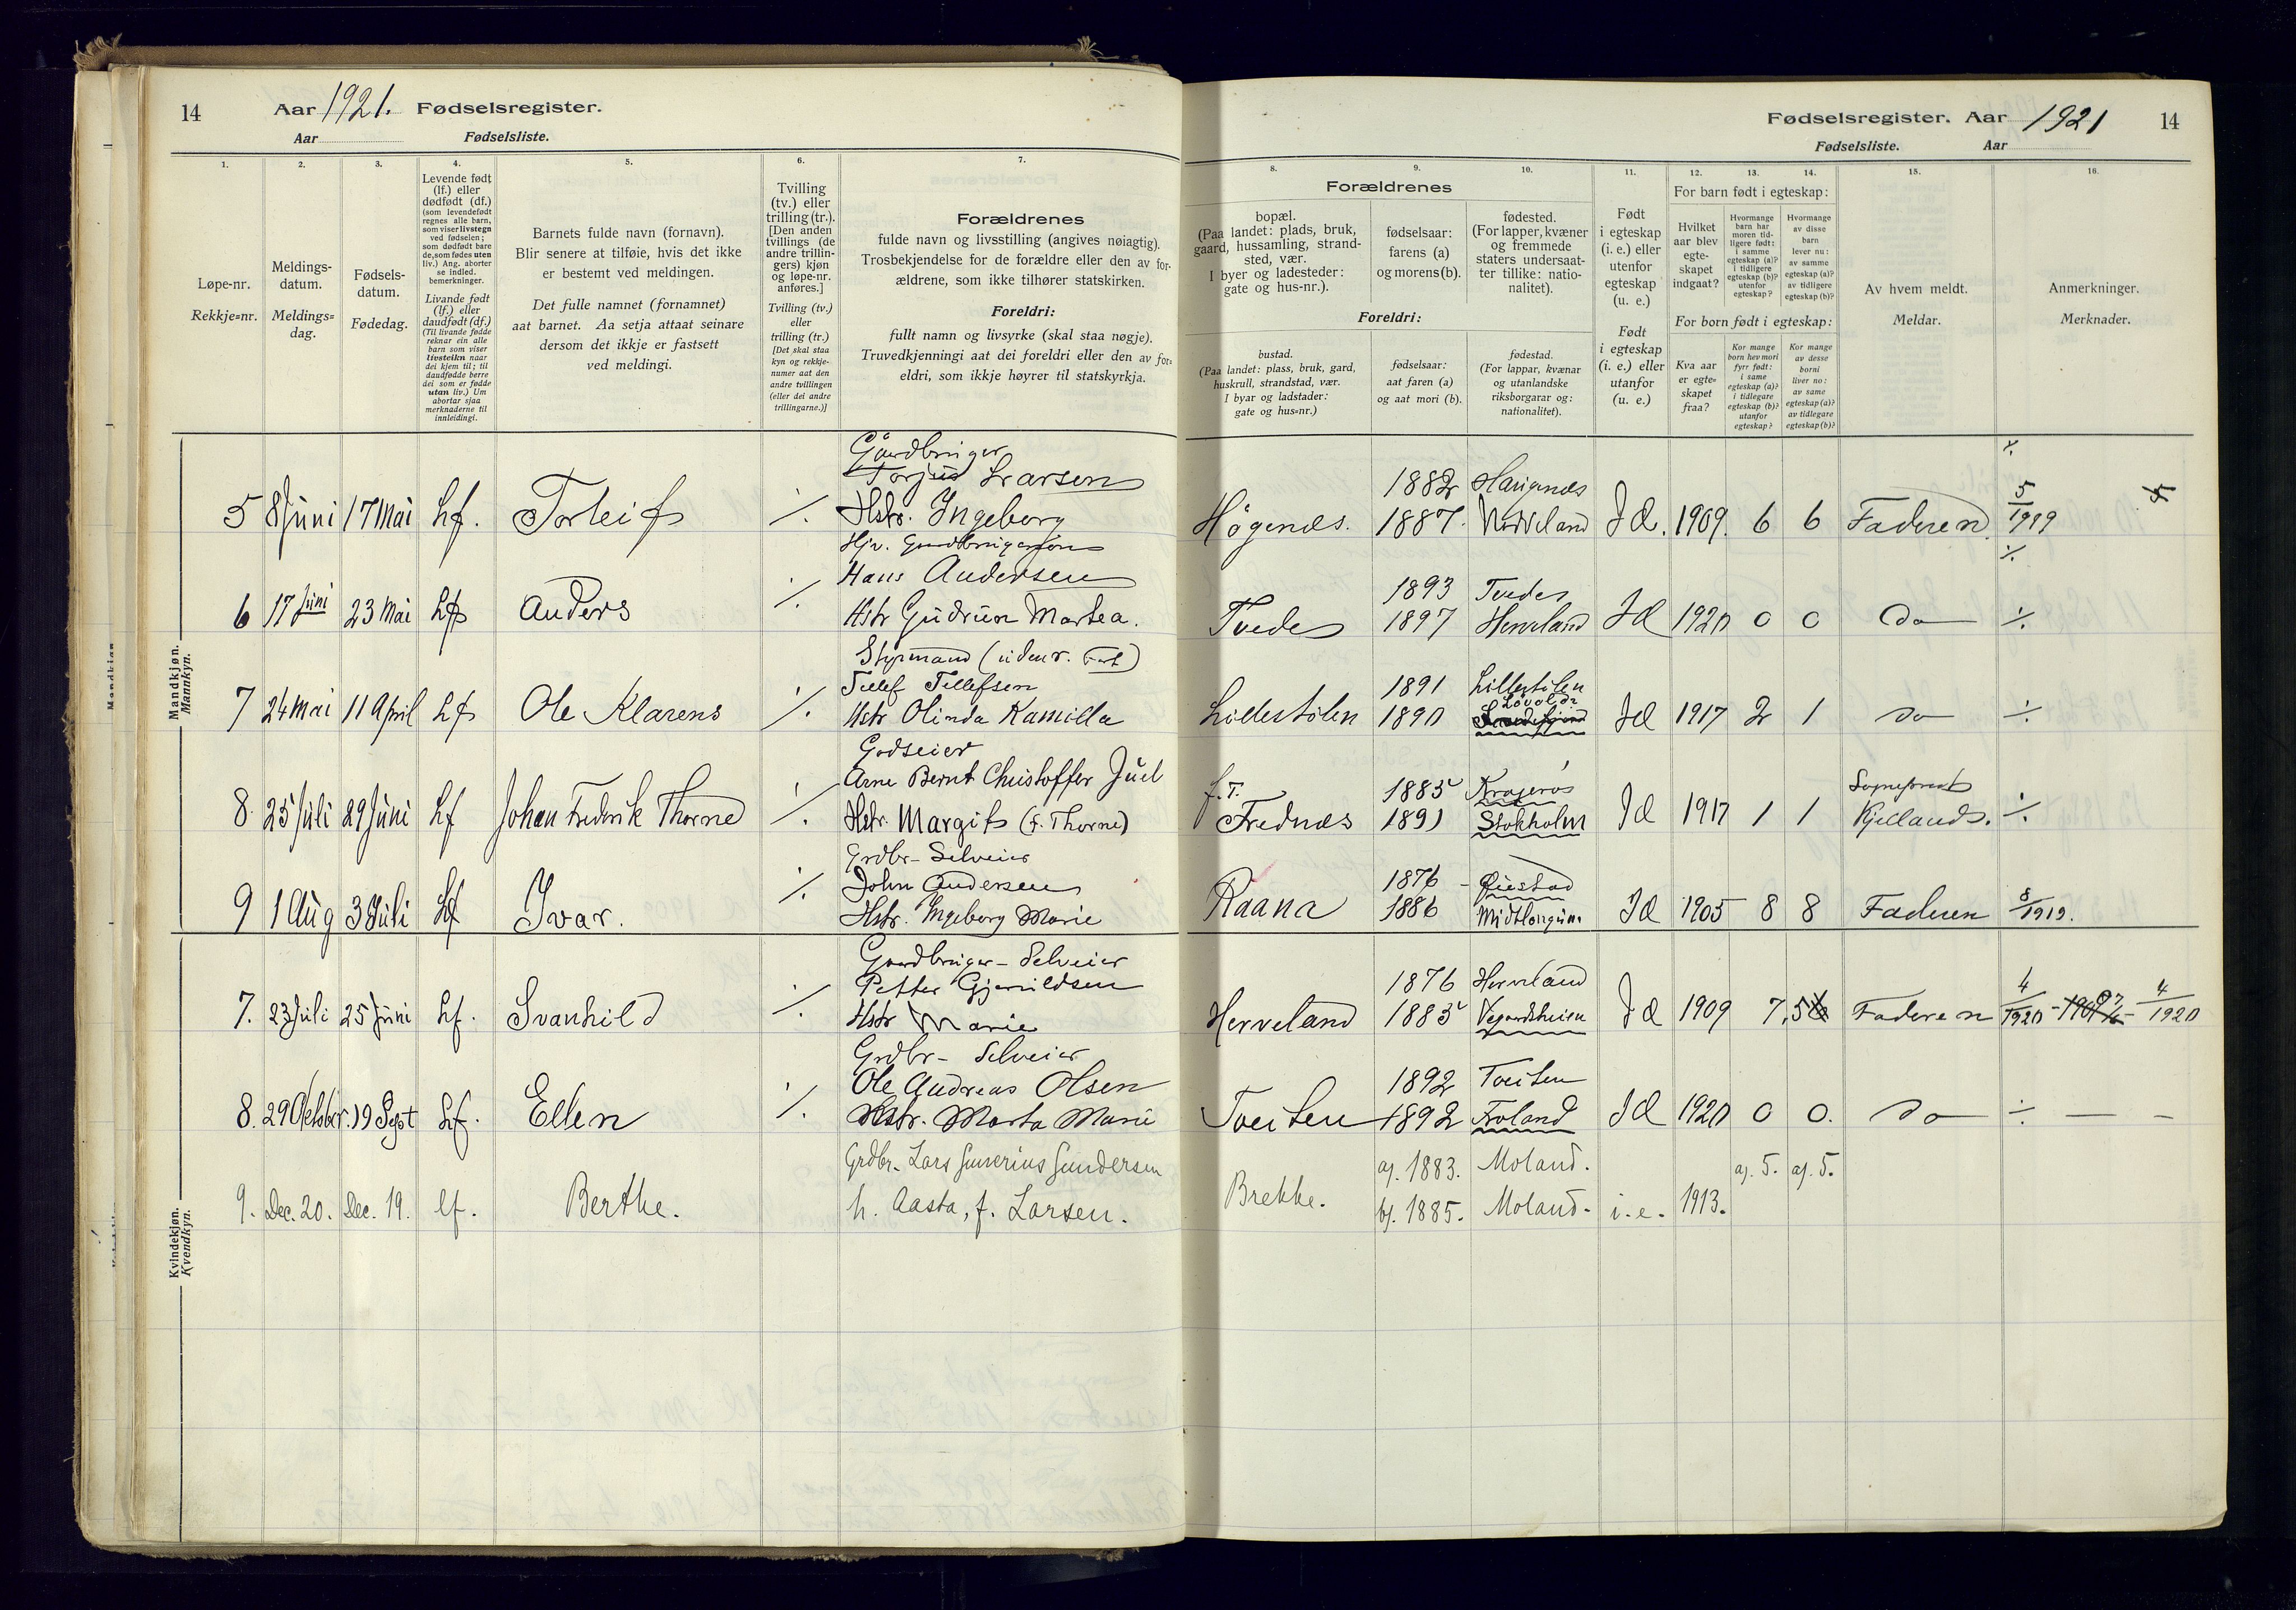 14
Aar 1921. Fødselsregister.
Aar Fødselsliste.
1.
2.
3.
4.
5.
6.
7.
Løpe-nr.
Rekkje=nr.
Meldings-
datum.
Meldings=
dag.
Fødsels-
datum.
Fødedag.
Levende født
(lf.) eller
dødfødt (df.)
(som levendefødt
regnes alle barn,
som viser livstegn
ved fødselen;
som dødfødt bare
de, som fødes uten
liv.) Ang. aborter
se indled.
bemerkninger.
Livande født
(lf.) eller
daudfødt (df.)
(Til livande fødde
reknar ein alle
barn som viser
livsteikn naar
dei kjem til; til
daudfødde berre
dei som er fødde
utan liv.) Um
abortar sjaa
merknaderne til
innleidingi.
Barnets fulde navn (fornavn).
Blir senere at tilføie, hvis det ikke
er bestemt ved meldingen.
Det fulle namnet (fornamnet)
aat barnet. Aa setja attaat seinare
dersom det ikkje er fastsett
ved meldingi.
Tvilling
(tv.) eller
trilling (tr.).
[Den anden
tvillings (de
andre trillin-
gers) kjøn
og løpe-nr.
anføres.]
Tvilling (tv.)
eller
trilling (tr.)
[Det skal staa
kyn og rekkje-
numer aat den
andre tvillingen
(eller dei andre
trillingarne.)]
Forældrenes
fulde navn og livsstilling (angives nøiagtig).
Trosbekjendelse for de forældre eller den av for-
ældrene, som ikke tilhører statskirken.
Foreldri:
fullt namn og livsyrke (skal staa nøgje).
Truvedkjenningi aat dei foreldri eller den av for=
eldri, som ikkje høyrer til statskyrkja.
Mandkjøn.
Mannkyn.
5 8 Juni 17 Mai Lf. Torleif ⁒ Gårdbruger
Torjus Larsen
Hstr. Ingeborg
6 17 Juni 23 Mai Lf Anders ⁒
Hans Andersen
Hstr Gudrun Martea.
7 24 Mai 11 April Lf Ole Klarens ⁒ Styrmand (udenr. Fart)
Tellef Tellefsen
Hstr Olinda Kamilla
8. 25 Juli 29 Juni Lf Johan Frederik Thorne ⁒ Godseier
Arne Bernt Christoffer Juel
Hstr. Margit (f. Thorne)
9 1 Aug 3 Juli Lf Ivar. ⁒ Grdbr- Selveier
John Andersen
Hstr. Ingeborg Marie
Kvindekjøn.
Kvendkyn.
7. 23 Juli 25 Juni Lf. Svanhild ⁒ Gaardbruger- Selveier
Petter Gjerulldsen
Hstr Marie
8. 29 Oktober. 19 Sept Lf. Ellen ⁒ Grdbr- Selveier
Ole Andreas Olsen
Hstr. Marta Marie
9. Dec. 20. Dec. 19. lf. Berthe. Grdbr. Lars Gunerius Gundersen
h. Aasta, f. Larsen.
Fødselsregister. Aar 1921 14
Fødselsliste. Aar
8.
9.
10.
11.
12.
13.
14.
15.
16.
Forældrenes
bopæl.
(Paa landet: plads, bruk,
gaard, hussamling, strand-
sted, vær.
I byer og ladesteder:
gate og hus-nr.).
fødselsaar:
farens (a)
og morens (b).
fødested.
(For lapper, kvæner
og fremmede
staters undersaat-
ter tillike: natio-
nalitet).
Foreldri:
bustad.
(Paa landet: plass, bruk, gard,
huskrull, strandstad, vær.
I byar og ladstader:
gate og hus=nr.)
fødselsaar:
aat faren (a)
og aat mori (b).
fødestad.
(For lappar, kvænar
og utanlandske
riksborgarar og:
nationalitet).
Født
i egteskap
(i. e.) eller
utenfor
egteskap
(u. e.)
Født
i egteskap
(i. e.) eller
utanfor
(u. e.)
For barn født i egteskap:
Hvilket
aar blev
egte-
skapet
indgaat?
Hvormange
barn har
moren tid-
ligere født:
i samme
egteskap (a)?
i tidligere
egteskap (b)?
utenfor
egteskap?
Hvormange
av disse
barn
lever nu:
av samme
egteskap (a)?
av tidligere
egteskap (b)?
For born født i egteskap:
Kva aar
er egte=
skapet
fraa?
Kor mange
born hev mori
fyrr født:
i same
egteskap (a)?
i tidlegare
egteskap (b)?
utanfor
egteskap?
Kor mange
av desse
borni
liver no:
av same
egteskap (a)?
av tidlegare
egteskap (b)?
Av hvem meldt.
Meldar.
Anmerkninger.
Merknader.
Høgenes. 1882
1887. I E. 1909. 6 6 Faderen. 5/1919
Tvede 1893 Tvede
1897 Herveland I E 1920 0 0 Do ⁒
Lillestølen 1891 Lillestølen
1890 I E 1917 2 1 Do ⁒
f.T.
Frednes 1885 Kragerø
1891 Stokholm I E 1917 1 1 Sogneprest
Kjelland. ⁒
Raana 1876 Øiestad
1886 I E 1905 8 8 Faderen 8/1919.
Herveland 1876 Herveland
1883 Vegardsheien I E 1909 7. 5 Faderen 4/1920 4/1920
Tveiten 1892 Tveiten
1892 Froland I E 1920 0 0. Do ⁒ — –
Brekke. a). 1883. Moland. a). 5. a). 5.
b). 1885. Moland. i.e. 1913.